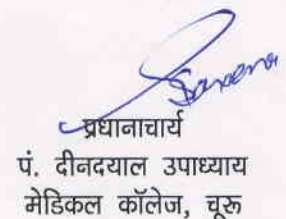 प्रधानाचार्य
पं. दीनदयाल उपाध्याय
मेडिकल कॉलेज, चूरू